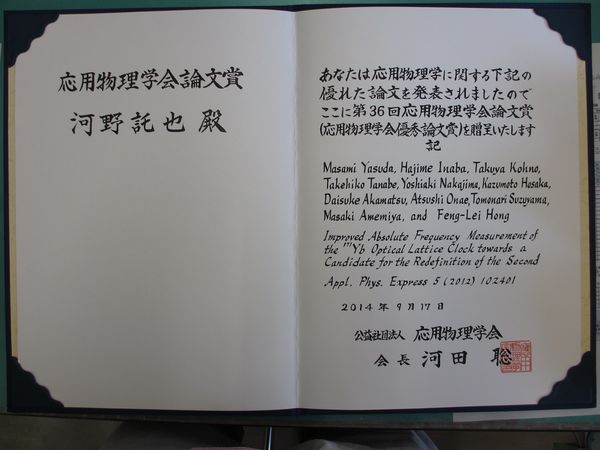 応用物理学会論文賞
河野託也 殿
あなたは応用物理学に関する下記の
優れた論文を発表されましたので
ここに第36回応用物理学会論文賞
(応用物理学会優秀論文賞)を贈呈いたします
記
Masami Yasuda, Hajime Inaba, Takuya Kohno,
Takehiko Tanabe, Yoshiaki Nakajima, Kazumoto Hosaka,
Daisuke Akamatsu, Atsushi Onae, Tomonari Suzuyama,
Masaki Amemiya, and Feng-Lei Hong
Improved Absolute Frequency Measurement of
the ¹⁷¹Yb Optical Lattice Clock towards a
Candidate for the Redefinition of the Second
Appl. Phys. Express 5 (2012) 102401
2014年 9月17日
公益社団法人 応用物理学会
会長 河田 聡